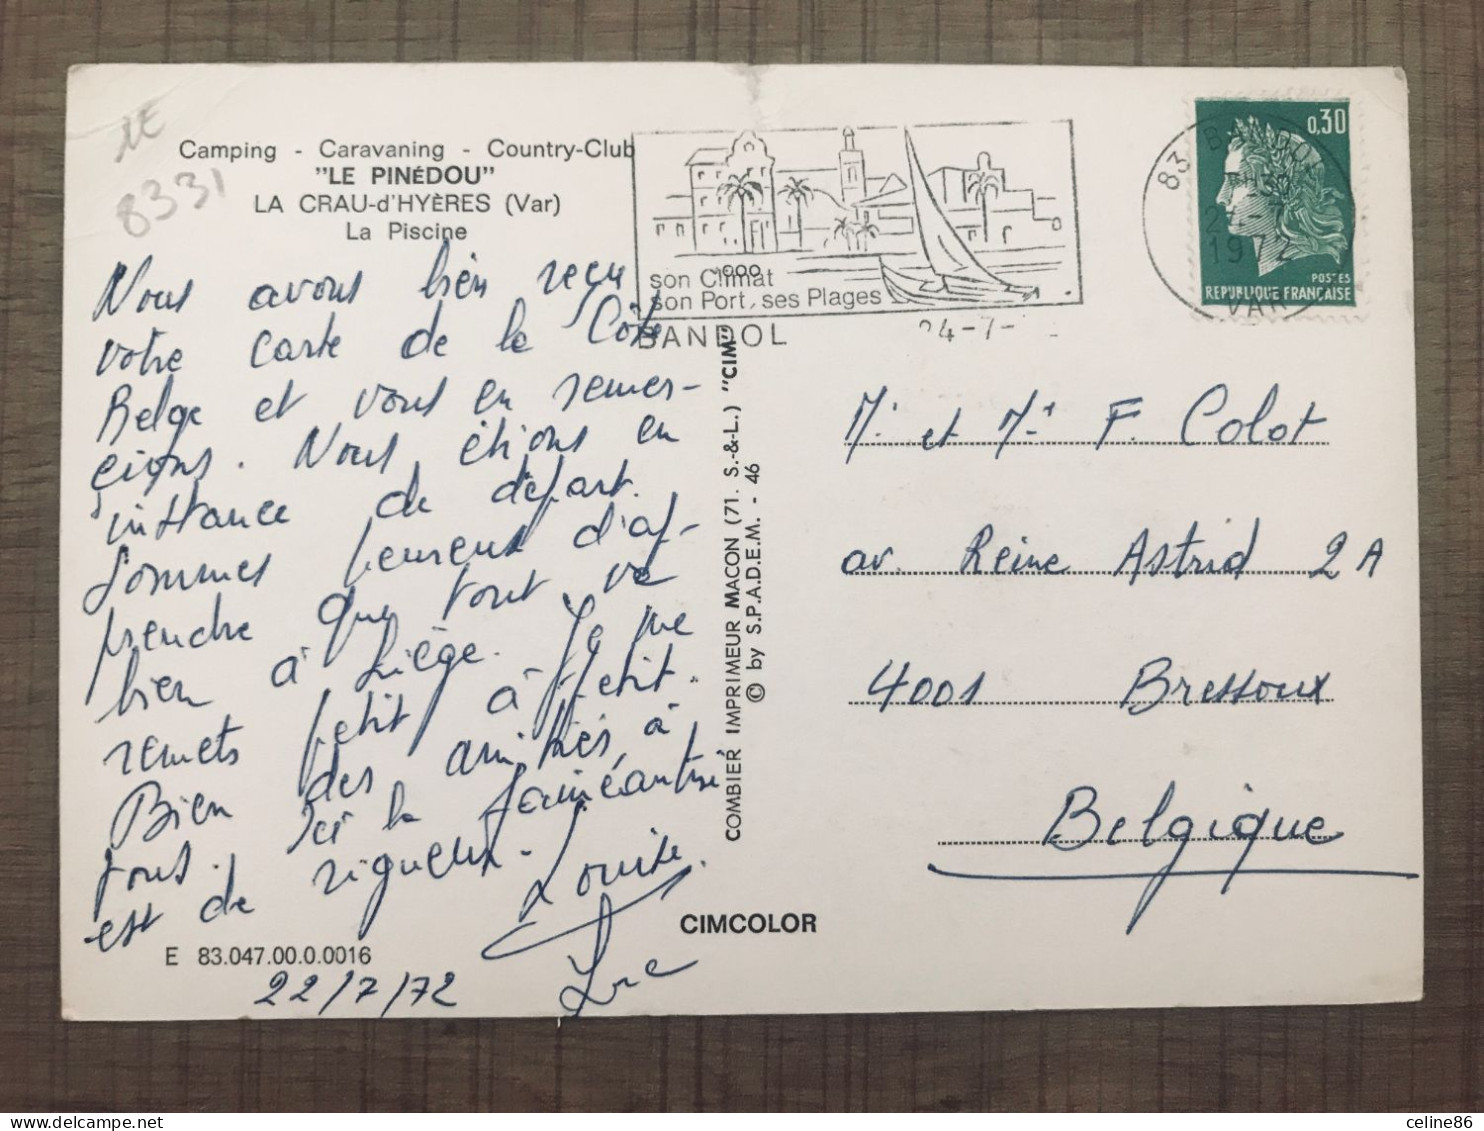 NE
8331
Camping - Caravaning - Country-Club
"LE PINÉDOU"
LA CRAU-d'HYÈRES (Var)
La Piscine
Nous avons bien reçu
votre carte de la Côte
Belge et vous en remer-
çions. Nous étions en
instance de départ.
Sommes heureux d'ap-
prendre que tout va
bien à Liège. Je me
remets petit à petit.
Bien des amitiés à
tous. Ici la fainéantise
est de rigueur.
Louise.
Luc
E 83.047.00.0.0016
22/7/72
son Climat
son Port, ses Plages
BANDOL
24-7-
COMBIER IMPRIMEUR MACON (71. S.-&-L.) "CIM"
© by S.P.A.D.E.M. - 46
CIMCOLOR
83 BANDOL
1972
VAR
0,30
POSTES
REPUBLIQUE FRANÇAISE
M. et Me F. Colot
av. Reine Astrid 2A
4001 Bressoux
Belgique
celine86